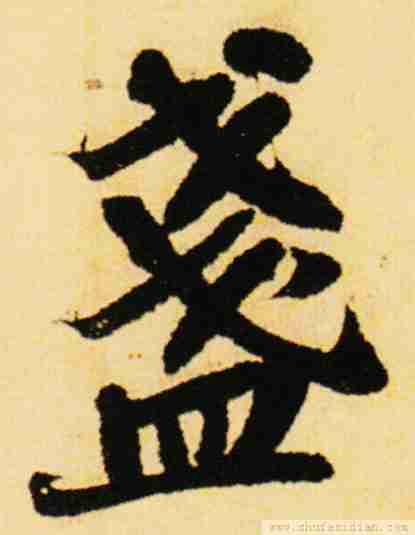 盞
www.shufazidian.com